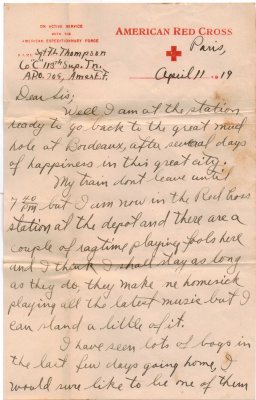 ON ACTIVE SERVICE
WITH THE
AMERICAN EXPEDITIONARY FORCE
AMERICAN RED CROSS
NAME Sgt Th Thompson
Co "C" 113th Sup. Tn.
A.P.O. 705, Amer E.F.
Paris,
April 11 1919
Dear Sis;
Well I am at the station
ready to go back to the great mud
hole at Bordeaux, after several days
of happiness in this great city.
My train dont leave until
7 40 PM but I am now in the Red Cross
station at the depot and there are a
couple of ragtime playing fools here
and I think I shall stay as long
as they do, they make me homesick
playing all the latest music but I
can stand a little of it.
I have seen lots of boys in
the last few days going home, I
would sure like to be one of them